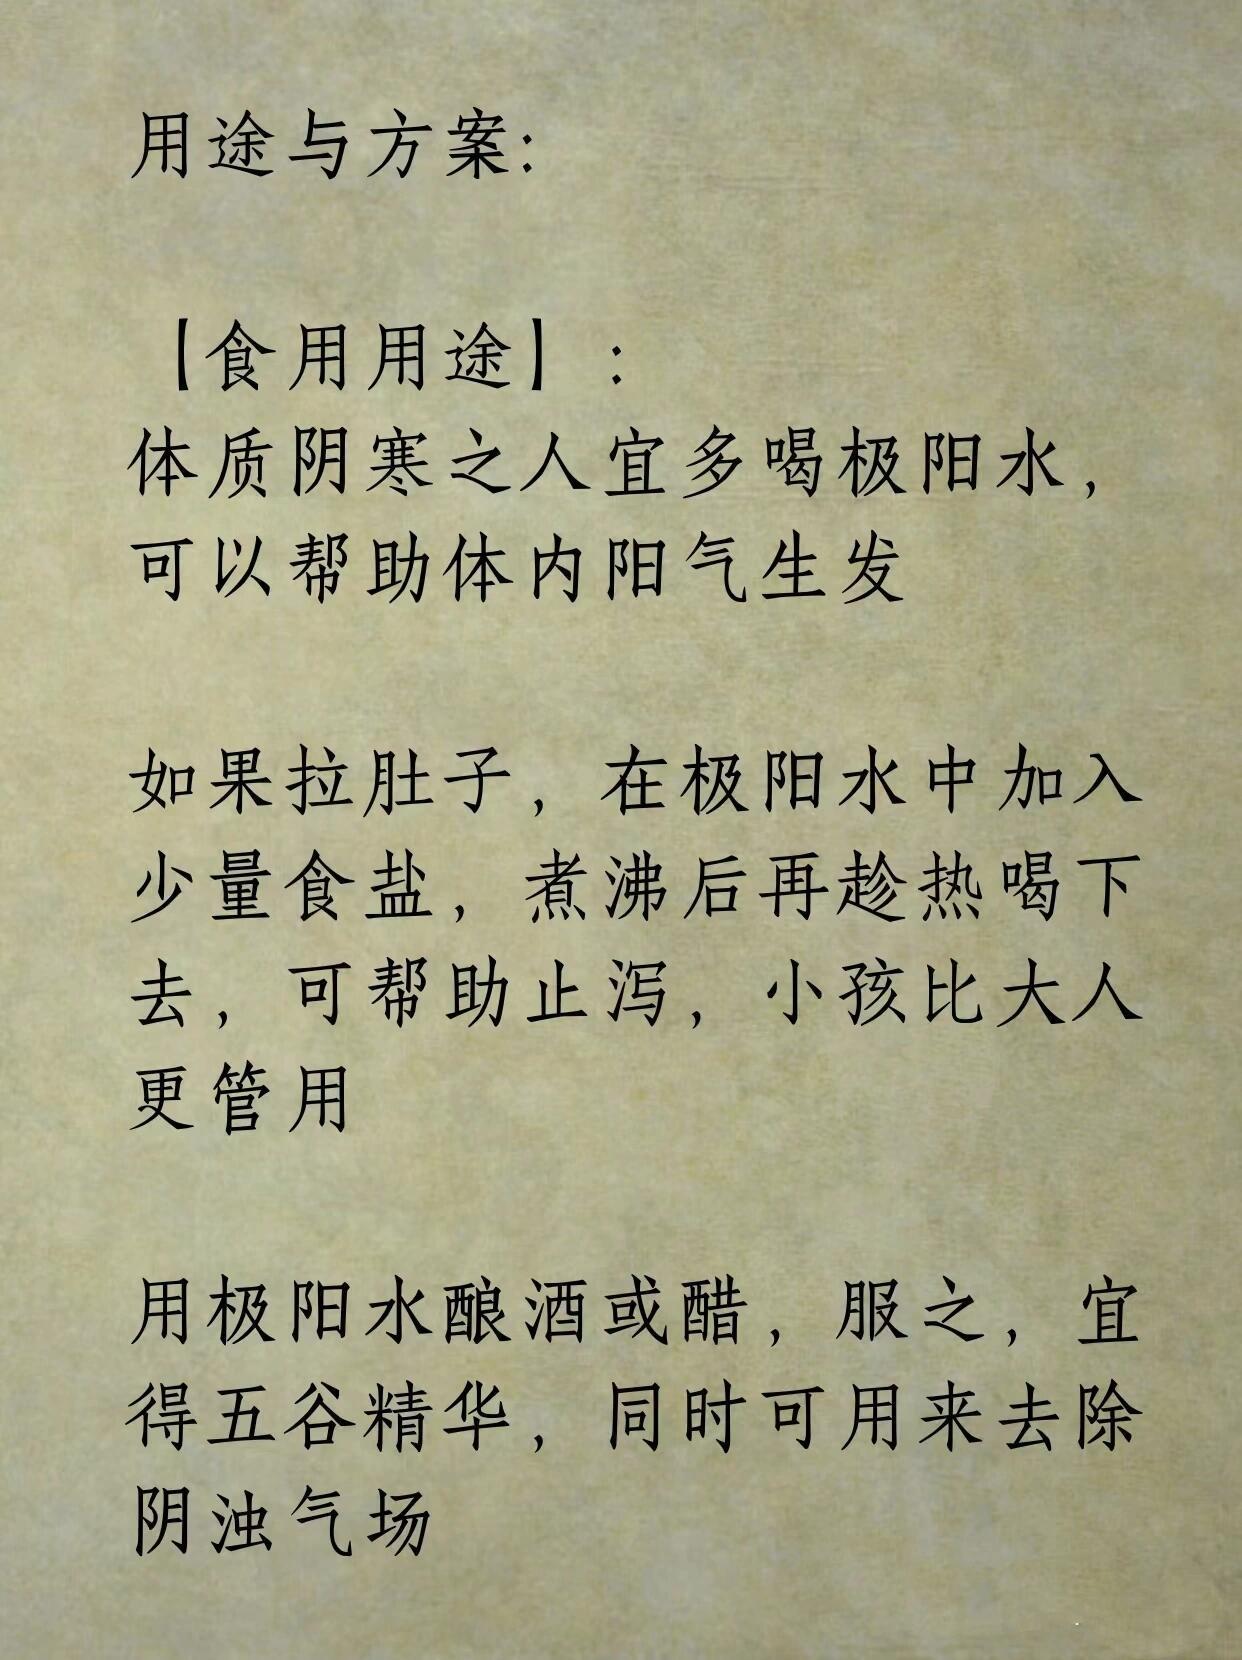 用途与方案：
【食用用途】：
体质阴寒之人宜多喝极阳水，
可以帮助体内阳气生发
如果拉肚子，在极阳水中加入
少量食盐，煮沸后再趁热喝下
去，可帮助止泻，小孩比大人
更管用
用极阳水酿酒或醋，服之，宜
得五谷精华，同时可用来去除
阴浊气场